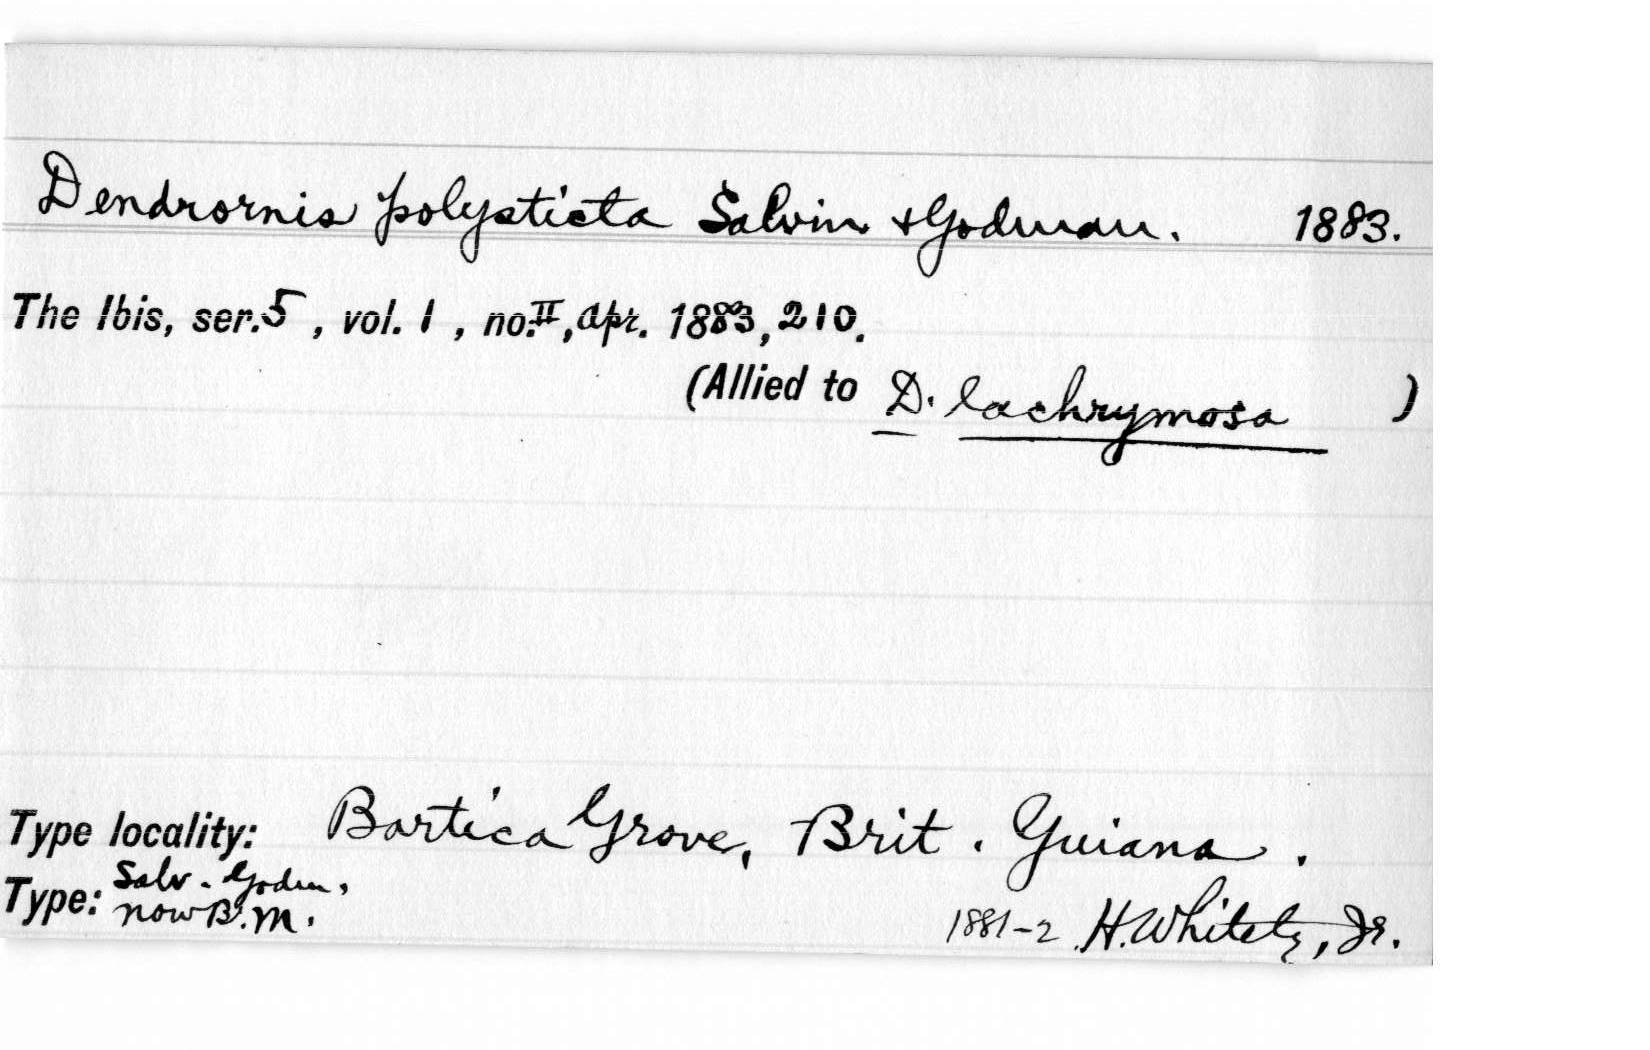 Dendrornis polysticta Salvin & Godman. 1883.
The Ibis, ser.5, vol. 1, no.II, Apr. 1883, 210.
(Allied to D. lachrymosa )
Type locality: Bartica Grove, Brit. Guiana.
Type: Salv.-Godm.,
now B.M.
1881-2 H. Whitely, Jr.